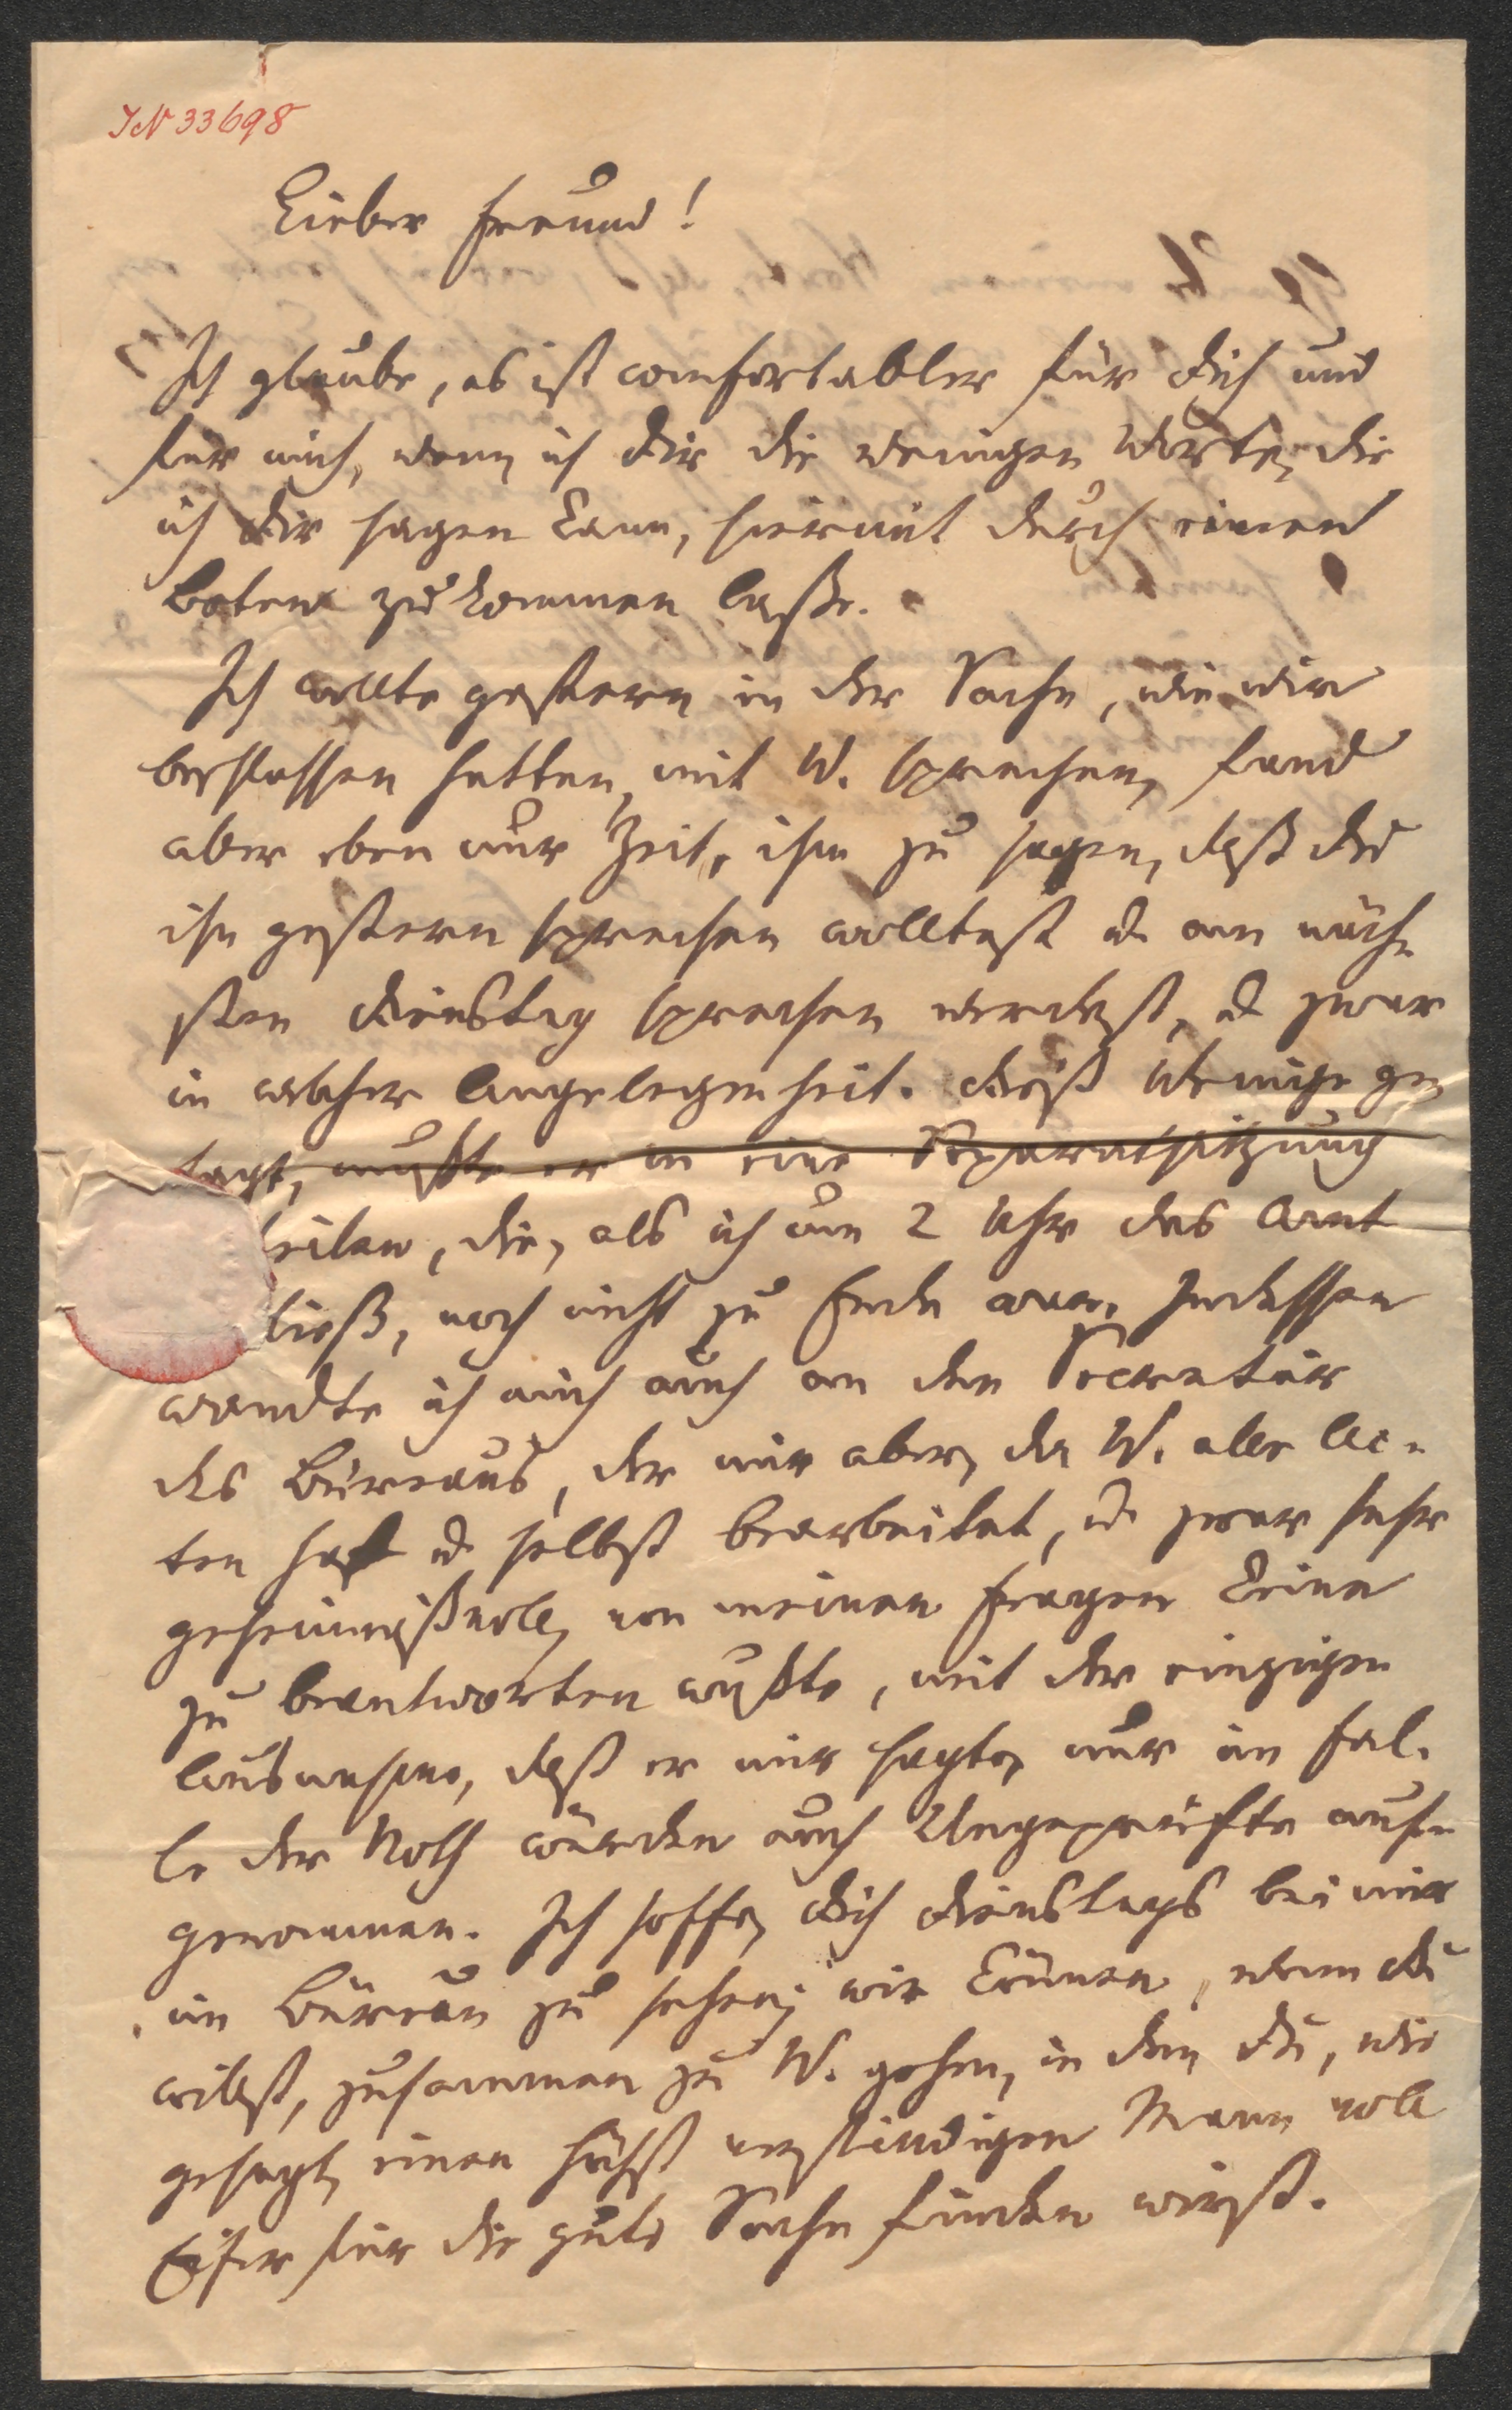 IN 33698
Lieber Freund!
Ich glaube, es ist comfortabler für Dich und
für mich, wenn ich Dir die wenigen Worte, die
ich Dir sagen kann, hiermit durch einen
Boten zukommen laße.
Ich wollte gestern in der Sache, wie wir
beschlossen hatten, mit W. sprechen, fand
aber eben nur Zeit, ihm zu sagen, daß Du
ihn gestern sprechen wolltest u am näch-
sten Dienstag sprechen werdest, u zwar
in welcher Angelegenheit. Dieß Wenige ge-
sagt, mußte er in eine Separatsitzung
eilen, die, als ich um 2 Uhr das Amt
ließ, noch nicht zu Ende war. Indessen
wandte ich mich auch an den Secretär
des Büreaus, der mir aber, da W. alle Ac-
ten hat u selbst bearbeitet, u zwar sehr
geheimnißvoll, von meinen Fragen keine
zu beantworten wußte, mit der einzigen
Ausnahme, daß er mir sagte, nur im Fal-
le der Noth würden auch Ungeprüfte auf-
genommen. Ich hoffe, Dich Dienstags bei mir
im Büreau zu sehen; wir können, wenn Du
willst, zusammen zu W. gehen, in dem Du, wie
gesagt, einen höchst verständigen Mann voll
Eifer für die gute Sache finden wirst.